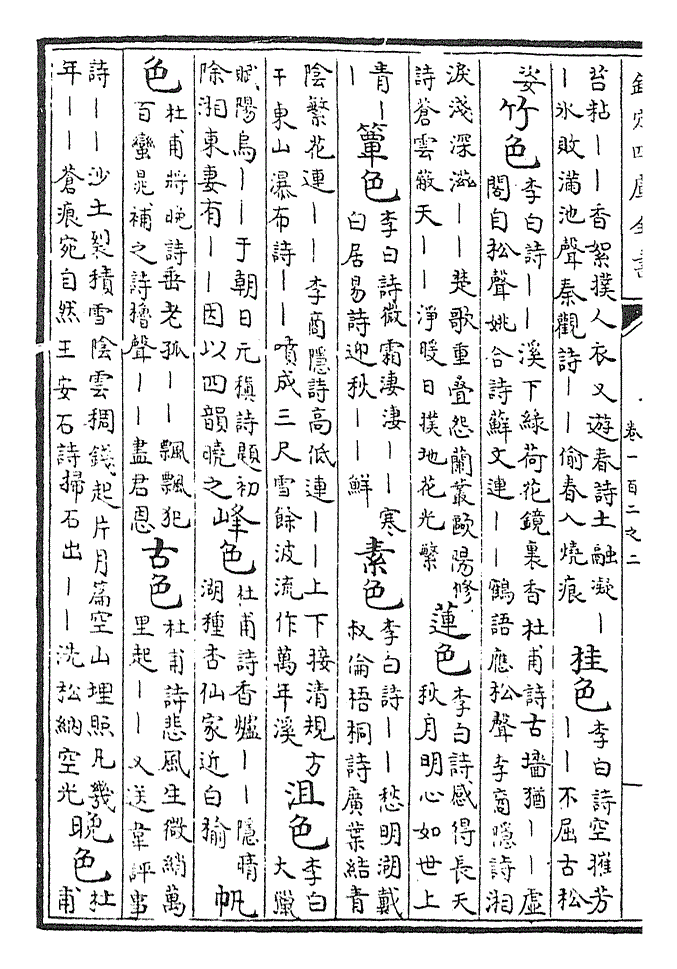 欽定四庫全書
卷一百二之二
苔粘——香絮撲人衣又遊春詩土融凝—
—氷敗滿池聲秦觀詩——偷春入燒痕
桂色
李白詩空摧芳
——不屈古松
姿
竹色
李白詩——溪下緑荷花鏡裏香杜甫詩古墻猶——虛
閣自松聲姚合詩蘚文連——鶴語應松聲李商隱詩湘
淚淺深滋——楚歌重疊怨蘭叢歐陽修
詩蒼雲蔽天——淨暖日撲地花光繁
蓮色
李白詩感得長天
秋月明心如世上
青—
—
簟色
李白詩微霜淒淒——寒
白居易詩迎秋——鮮
素色
李白詩——愁明湖戴
叔倫梧桐詩廣葉結青
陰繁花連——李商隱詩高低連——上下接清規方
干東山瀑布詩——噴成三尺雪餘波流作萬年溪
沮色
李白
大獵
賦陽烏——于朝日元稹詩題初
除湘東妻有——因以四韻曉之
峰色
杜甫詩香爐——隱晴
湖種杏仙家近白榆
帆
色
杜甫將晚詩垂老孤——飄飄犯
百蠻晁補之詩艣聲——盡君恩
古色
杜甫詩悲風生微綃萬
里起——又送韋評事
詩——沙土裂積雪陰雲稠錢起片月篇空山埋照凡幾
年——蒼痕宛自然王安石詩掃石出——洗松納空光
晚色
杜
甫